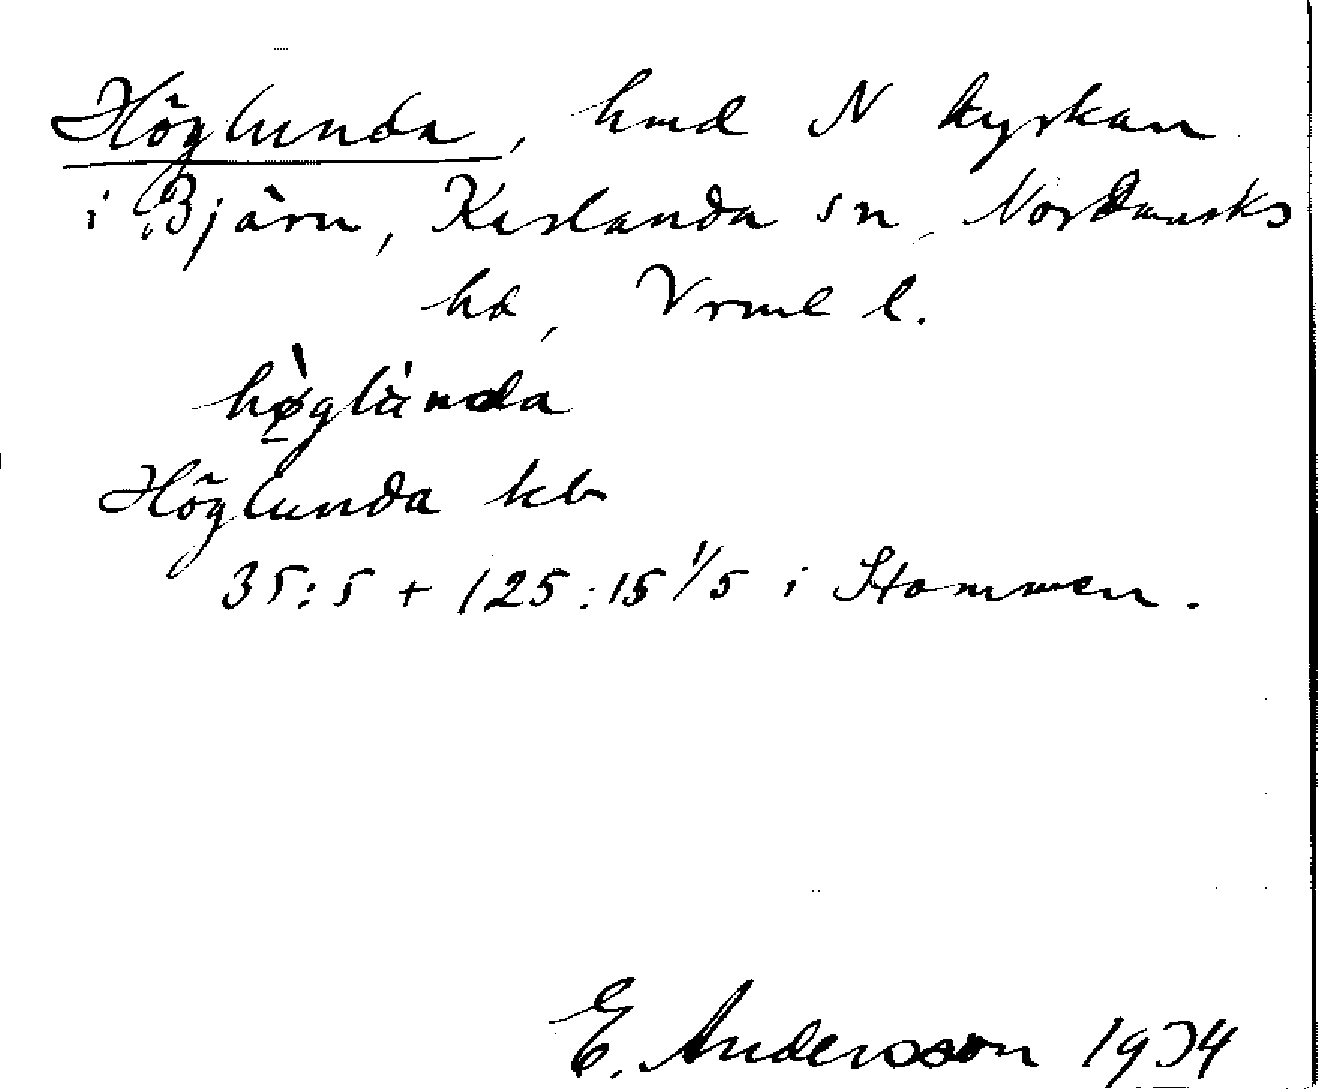 Höglunda, hmd N kyrkan
i Bjärn, Karlanda sn, Nordmarks
hd, Vrml l.
Höglunda kb
35:5 + 125:15 1/5 i Stommen.
E. Andersson 1934